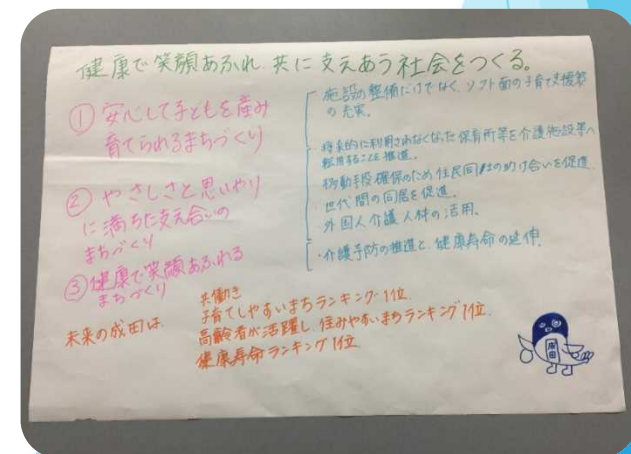 健康で笑顔あふれ、共に支えあう社会をつくる。
①安心して子どもを産み
育てられるまちづくり
②やさしさと思いやり
に満ちた支え合いの
まちづくり
③健康で笑顔あふれる
まちづくり
・施設の整備だけでなく、ソフト面の子育て支援策
の充実。
・将来的に利用されなくなった保育所等を介護施設等へ
転用することを推進。
・移動手段確保のため住民同士の助け合いを促進。
・世代間の同居を促進。
・外国人介護人材の活用。
・介護予防の推進と、健康寿命の延伸。
未来の成田は
共働き
子育てしやすいまちランキング1位
高齢者が活躍し、住みやすいまちランキング1位
健康寿命ランキング1位
成田